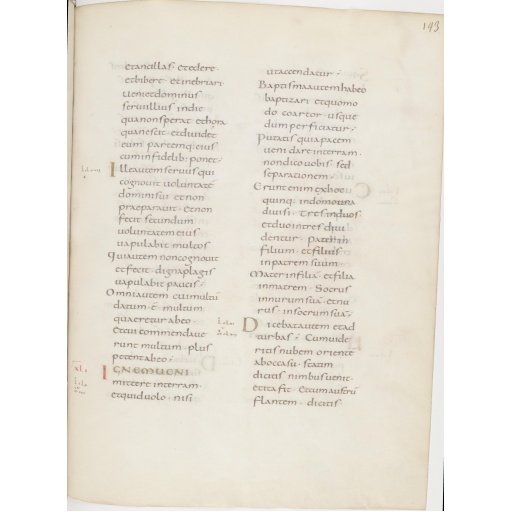 193
et ancillas · et edere
et bibere · et inebriari ·
ueniet dominus
serui illius in die
qua non sperat · et hora
qua nescit · et diuidet
eum partemq; eius
cum infidelib; ponet ·
Ille autem seruus qui
cognouit uoluntatē
domini sui et non
praeparauit · et non
fecit secundum
uoluntatem eius
uapulabit multos
Qui autem non cognouit
et fecit digna plagis
uapulabit paucis ·
Omni autem cui multū
datum · ē multum
quaeretur ab eo
Et cui commendaue
runt multum · plus
petent ab eo ·
IGNEM UENI
mittere in terram ·
et quid uolo · nisi
ut accendatur ·
Baptisma autem habeo
baptizari et quomo
do coartor · usque
dum perficiatur ·
Putatis quia pacem
ueni dare in terram ·
non dico uobis sed
separationem ·
Erunt enim ex hoc
quinq; in domo una
diuisi · tres in duos
et duo in tres diui
dentur · Pater in
filium · et filius
in patrem suum ·
Mater in filiā · et filia
in matrem · Socrus
in nurum suā · et nu
rus · in socrum suā ·
Dicebat autem et ad
turbas · Cum uide
ritis nubem oriente
ab occasu · statim
dicitis nimbus uenit ·
et ita fit · Et cum austrū
flantem · dicitis